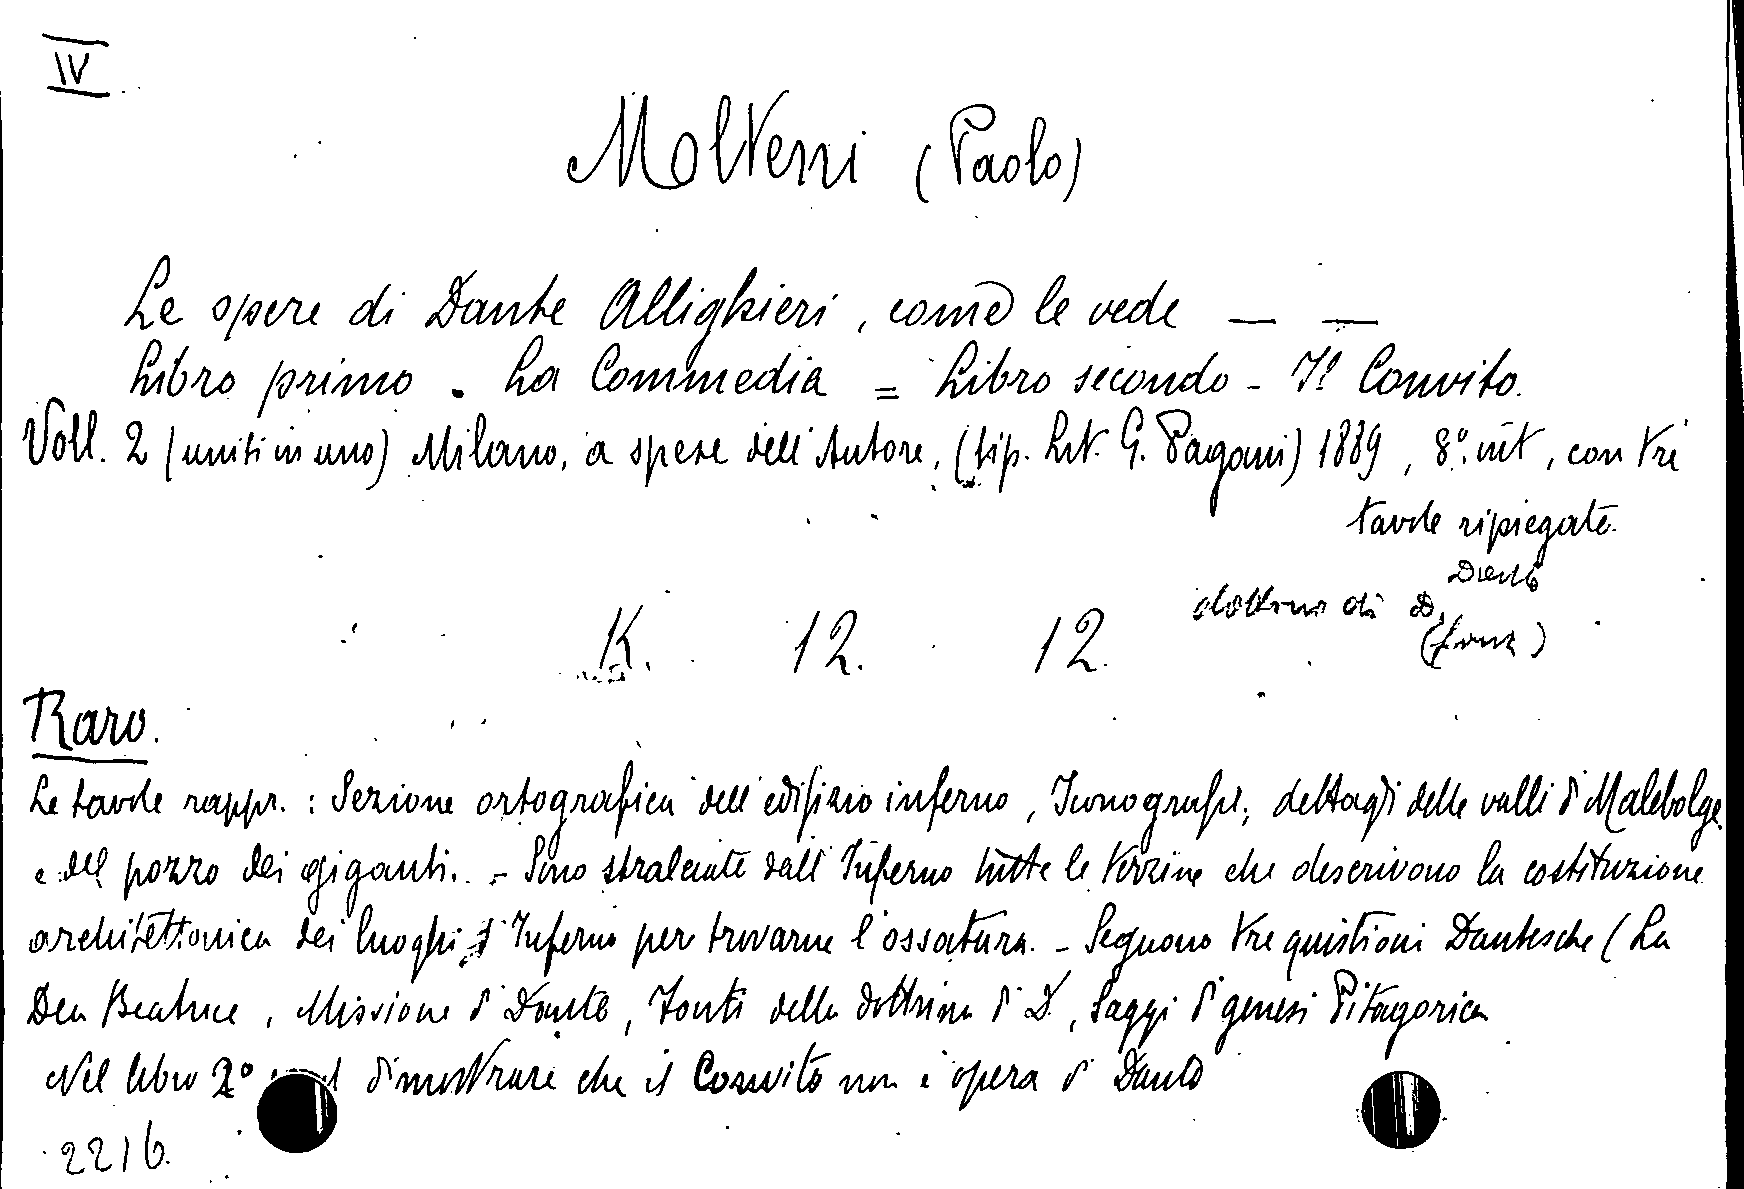 IV
Molteni (Paolo)
Le opere di Dante Allighieri, come le vede — —
Libro primo - La Commedia = Libro secondo - Il Convito.
Voll. 2 (uniti in uno) Milano, a spese dell'Autore, (tip. Lit. G. Pagani) 1889, 8°. int, con tre
tavole ripiegate.
Dante
dottrina di D.
(fonti)
K. 12. 12.
Raro.
Le tavole rappr. : Sezione ortografica dell'edifizio inferno, Iconograf., dettagli delle valli di Malebolge
e del pozzo dei giganti. - Sono stralciate dall'Inferno tutte le terzine che descrivono la costituzione
architettonica dei luoghi d'Inferno per trovarne l'ossatura. - Seguono tre quistioni Dantesche (La
Dea Beatrice, Missione di Dante, Fonti della dottrina di D., Saggi di genesi Pitagorica
Nel libro 2° dimostrare che il Convito non è opera di Dante
2216.